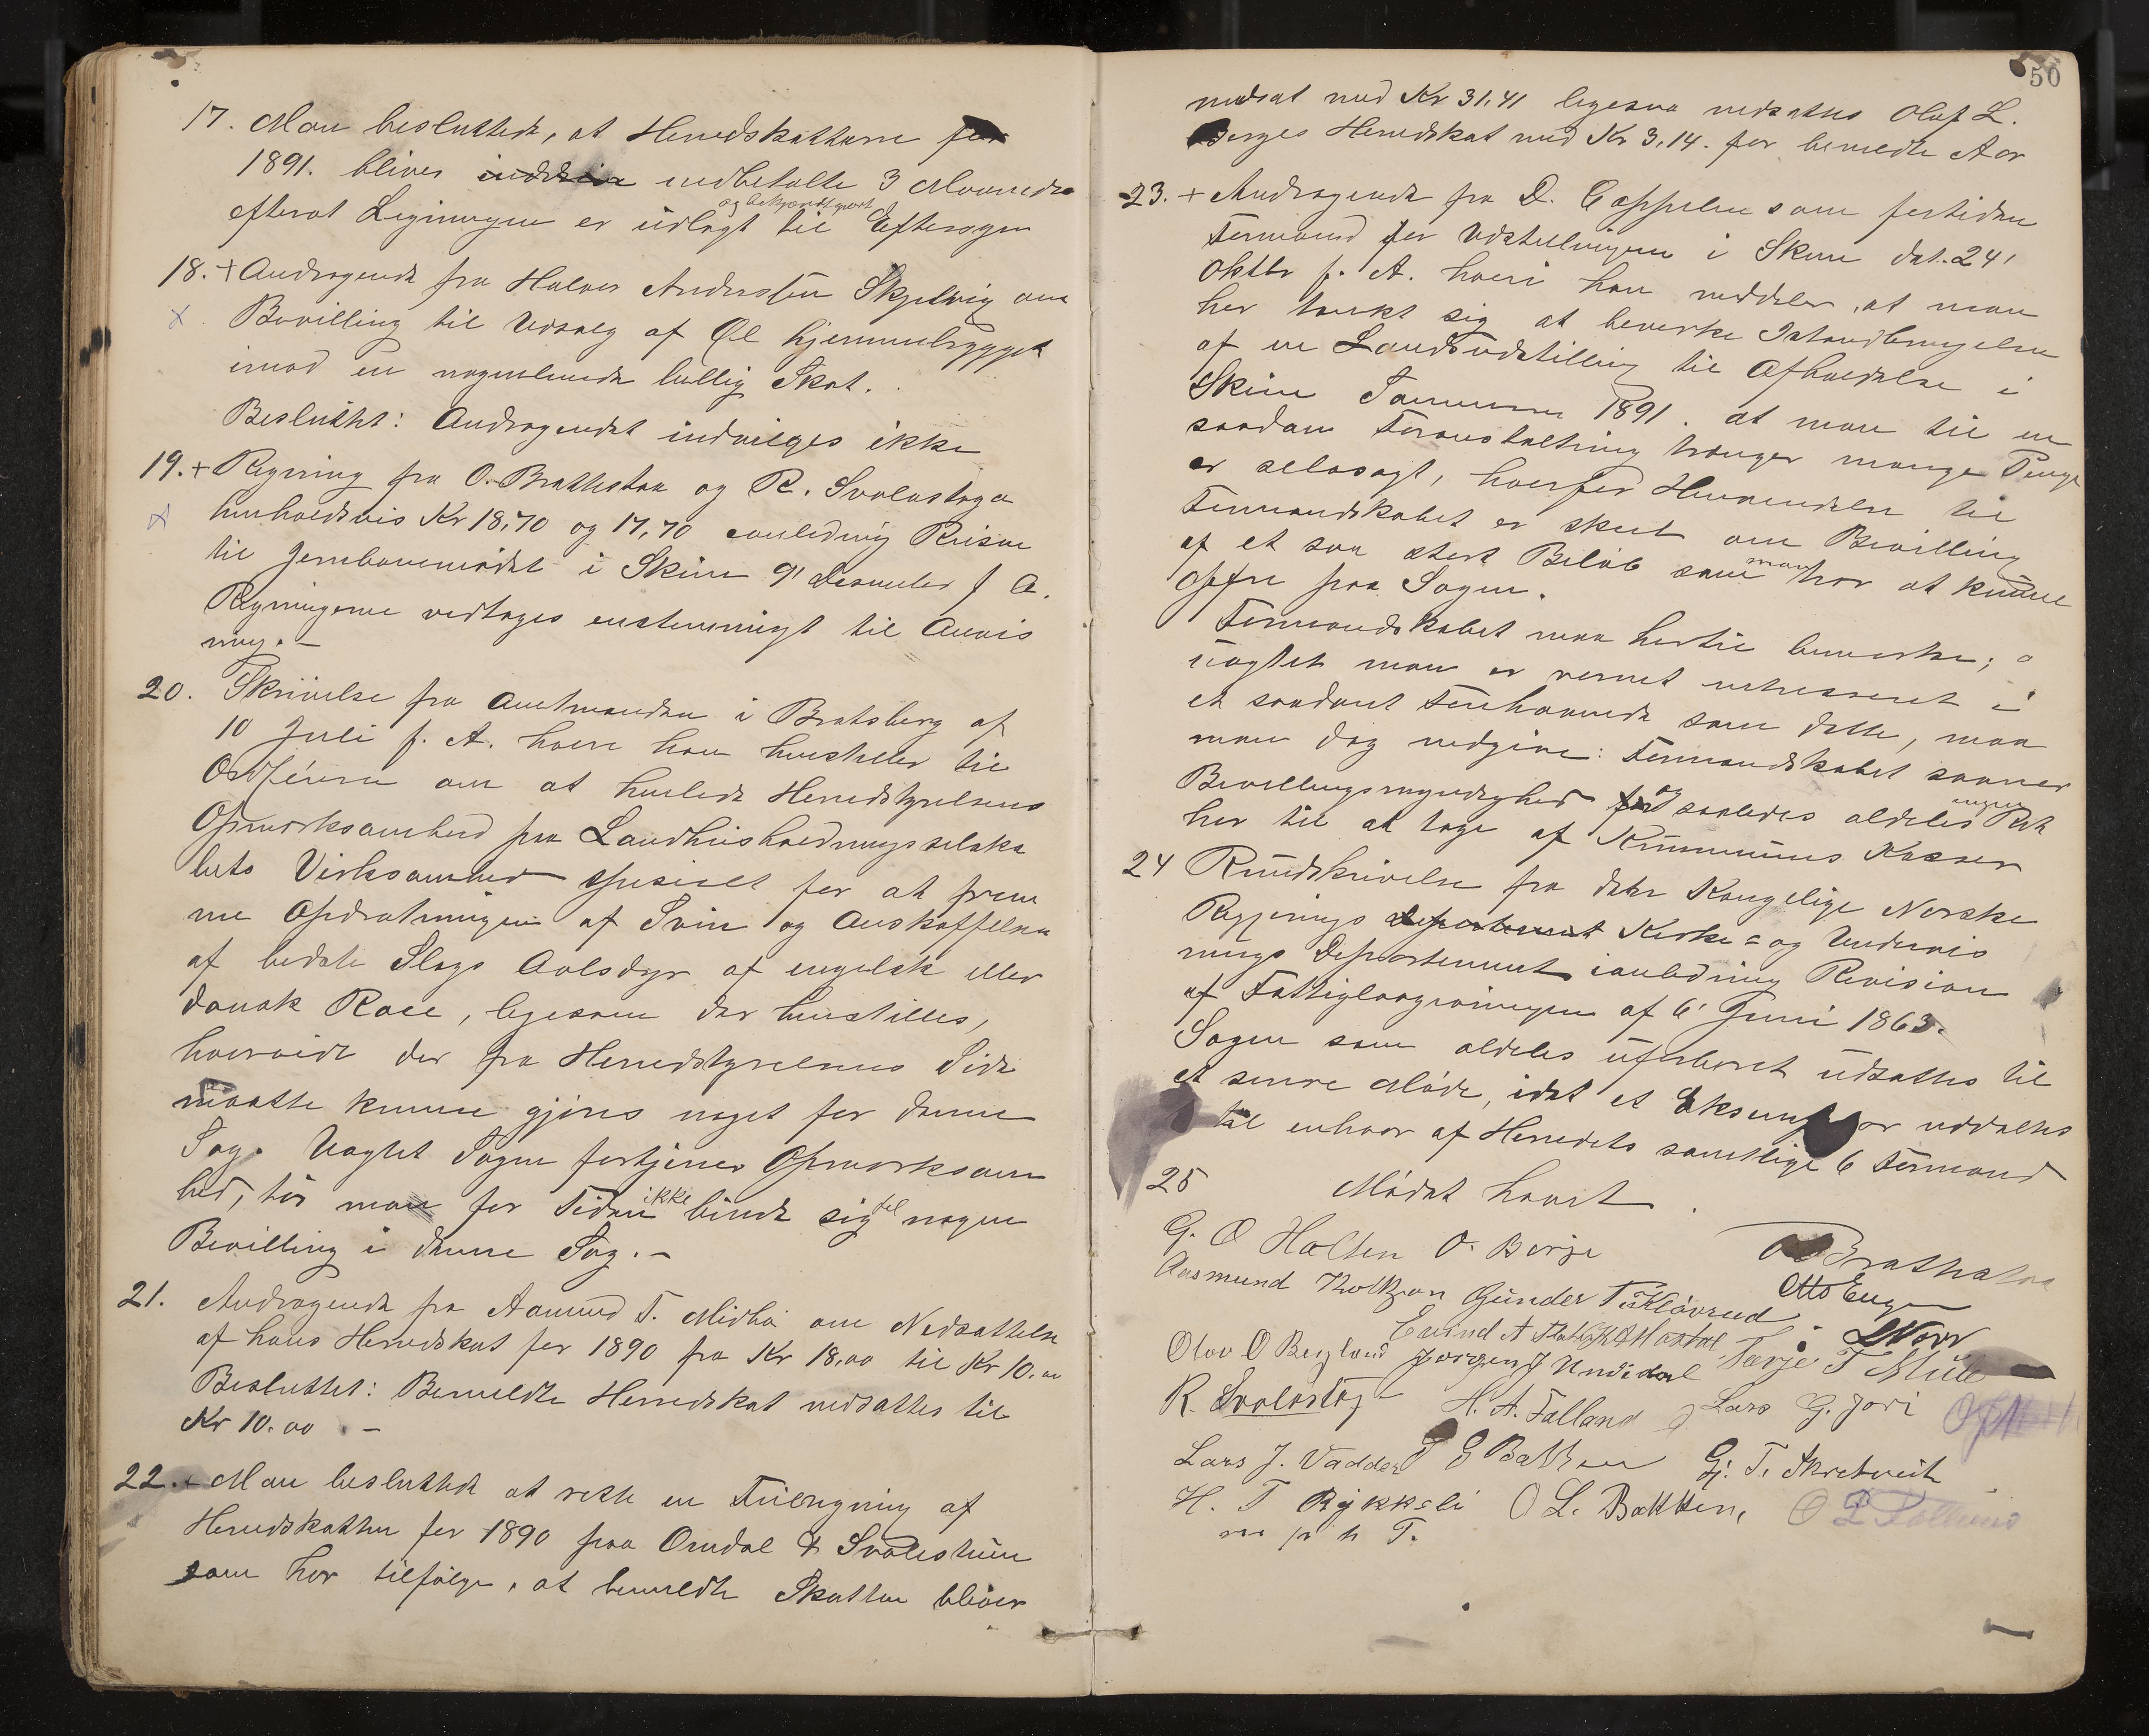 17. Man besluttede, at Herredskatterne for
1891. bliver indbetalte 3 Maaneder
og bekjendtgjort
efterat Ligningen er udlagt til Eftersyn
18. + Andragende fra Halvor Anderssen Skjelvig om
x Bevilling til Udsalg af Øl hjemmebrygget
imod en nogenlunde billig Skat.
Besluttet: Andragendet indvilges ikke
19. + Regning fra O. Brathstaa og R. Svalastoga
x henholdsvis Kr 18,70 og 17,70 anledning Reisen
til Jernbanemødet i Skien 9' Desember f A.
Regningerne vedtages enstemmigt til Anvis
ning. –
20. Skrivelse fra Amtmanden i Bratsberg af
10 Juli f. A. hvori han henstiller til
Ordføreren om at henlede Herredstyrelsens
Opmærksomhed paa Landhusholdningsselska
bets Virksomhed specielt for at frem
me Opdrætningen af Svin og Anskaffelsen
af bedste Slags Avlsdyr af engelsk eller
dansk Race, ligesom der henstilles,
hvorvidt der fra Herredstyrelsens Side
maatte kunne gjøres noget for denne
Sag. Uagtet Sagen fortjener Opmærksom
hed, tør man for Tiden ikke binde sig til nogen
Bevilling i denne Sag. –
21. Andragende fra Aamund T. Midbø om Nedsættelse
af hans Herredskat for 1890 fra Kr 18,00 til Kr 10.00
Besluttet: Bemeldte Herredskat nedsættes til
Kr 10.00 . –
22. + Man besluttede at rette en Feilregning af
Herredskatten for 1890 paa Omdal & Svalestuen
som har tilfølge, at bemeldte Skatten bliver
50
nedsat med Kr 31,41 ligesaa nedsættes Olaf L.
Berges Herredskat med Kr 3,14. for bemeldte Aar
23. + Andragende fra D. Cappelen som fortiden
Formand for Udstillingen i Skien dat. 24'
Oktbr f. A. hvori han meddeler, at man
har tænkt sig at bevirke Istandbringelsen
af en Landsudstilling til Afholdelse i
Skien Sommeren 1891. at man til en
saadan Foranstaltning trænger mange Penge
er selvsagt, hvorfor Henvendelse til
Formandskabet er skeet om Bevilling
af et saa stort Beløb som man har at kunne
offre paa Sagen.
Formandskabet maa hertil bemærke;
uagtet man er varmt interesseret i
et saadant Foretagende som dette, maa
man dog medgive: Formandskabet savner
Bevillingsmyndighed og saaledes aldeles ingen Ret
her til at tage af Kommunens Kasser
24 Rundskrivelse fra det Kongelige Norske
Regjerings Departement Kirke = og Undervis
nings Departement ianledning Revision
af Fattiglovgivningen af 6' Juni 1863.
Sagen som aldeles uforberet udsattes til
et senere Møde, idet et Eksemplar uddeltes
til enhver af Herredets samtlige 6 Formænd
25 Mødet hævet.
G. O Holten O. Berge O Brathstaa
Aasmund Gunder T Kløvrud Otto Eugen
Eivind A
Olav O Berglund Jørgen J Undedal Tarje T
R. Svalastog H. A. Falland Lars G. Jori
Lars J. Vadder E Bakken Gj. T. Skretveit
H. T Rykkeli O L. Bakken, O
m p h T.